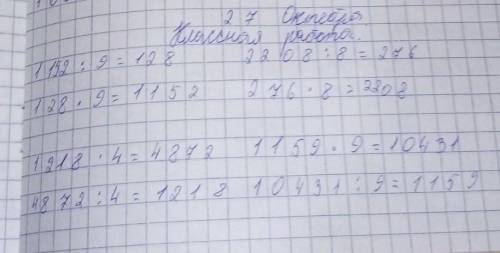 27 Октября.
Классная работа.
1152 : 9 = 128 2208 : 8 = 276
128 · 9 = 1152 276 · 8 = 2208
1218 · 4 = 4872 1159 · 9 = 10431
4872 : 4 = 1218 10431 : 9 = 1159